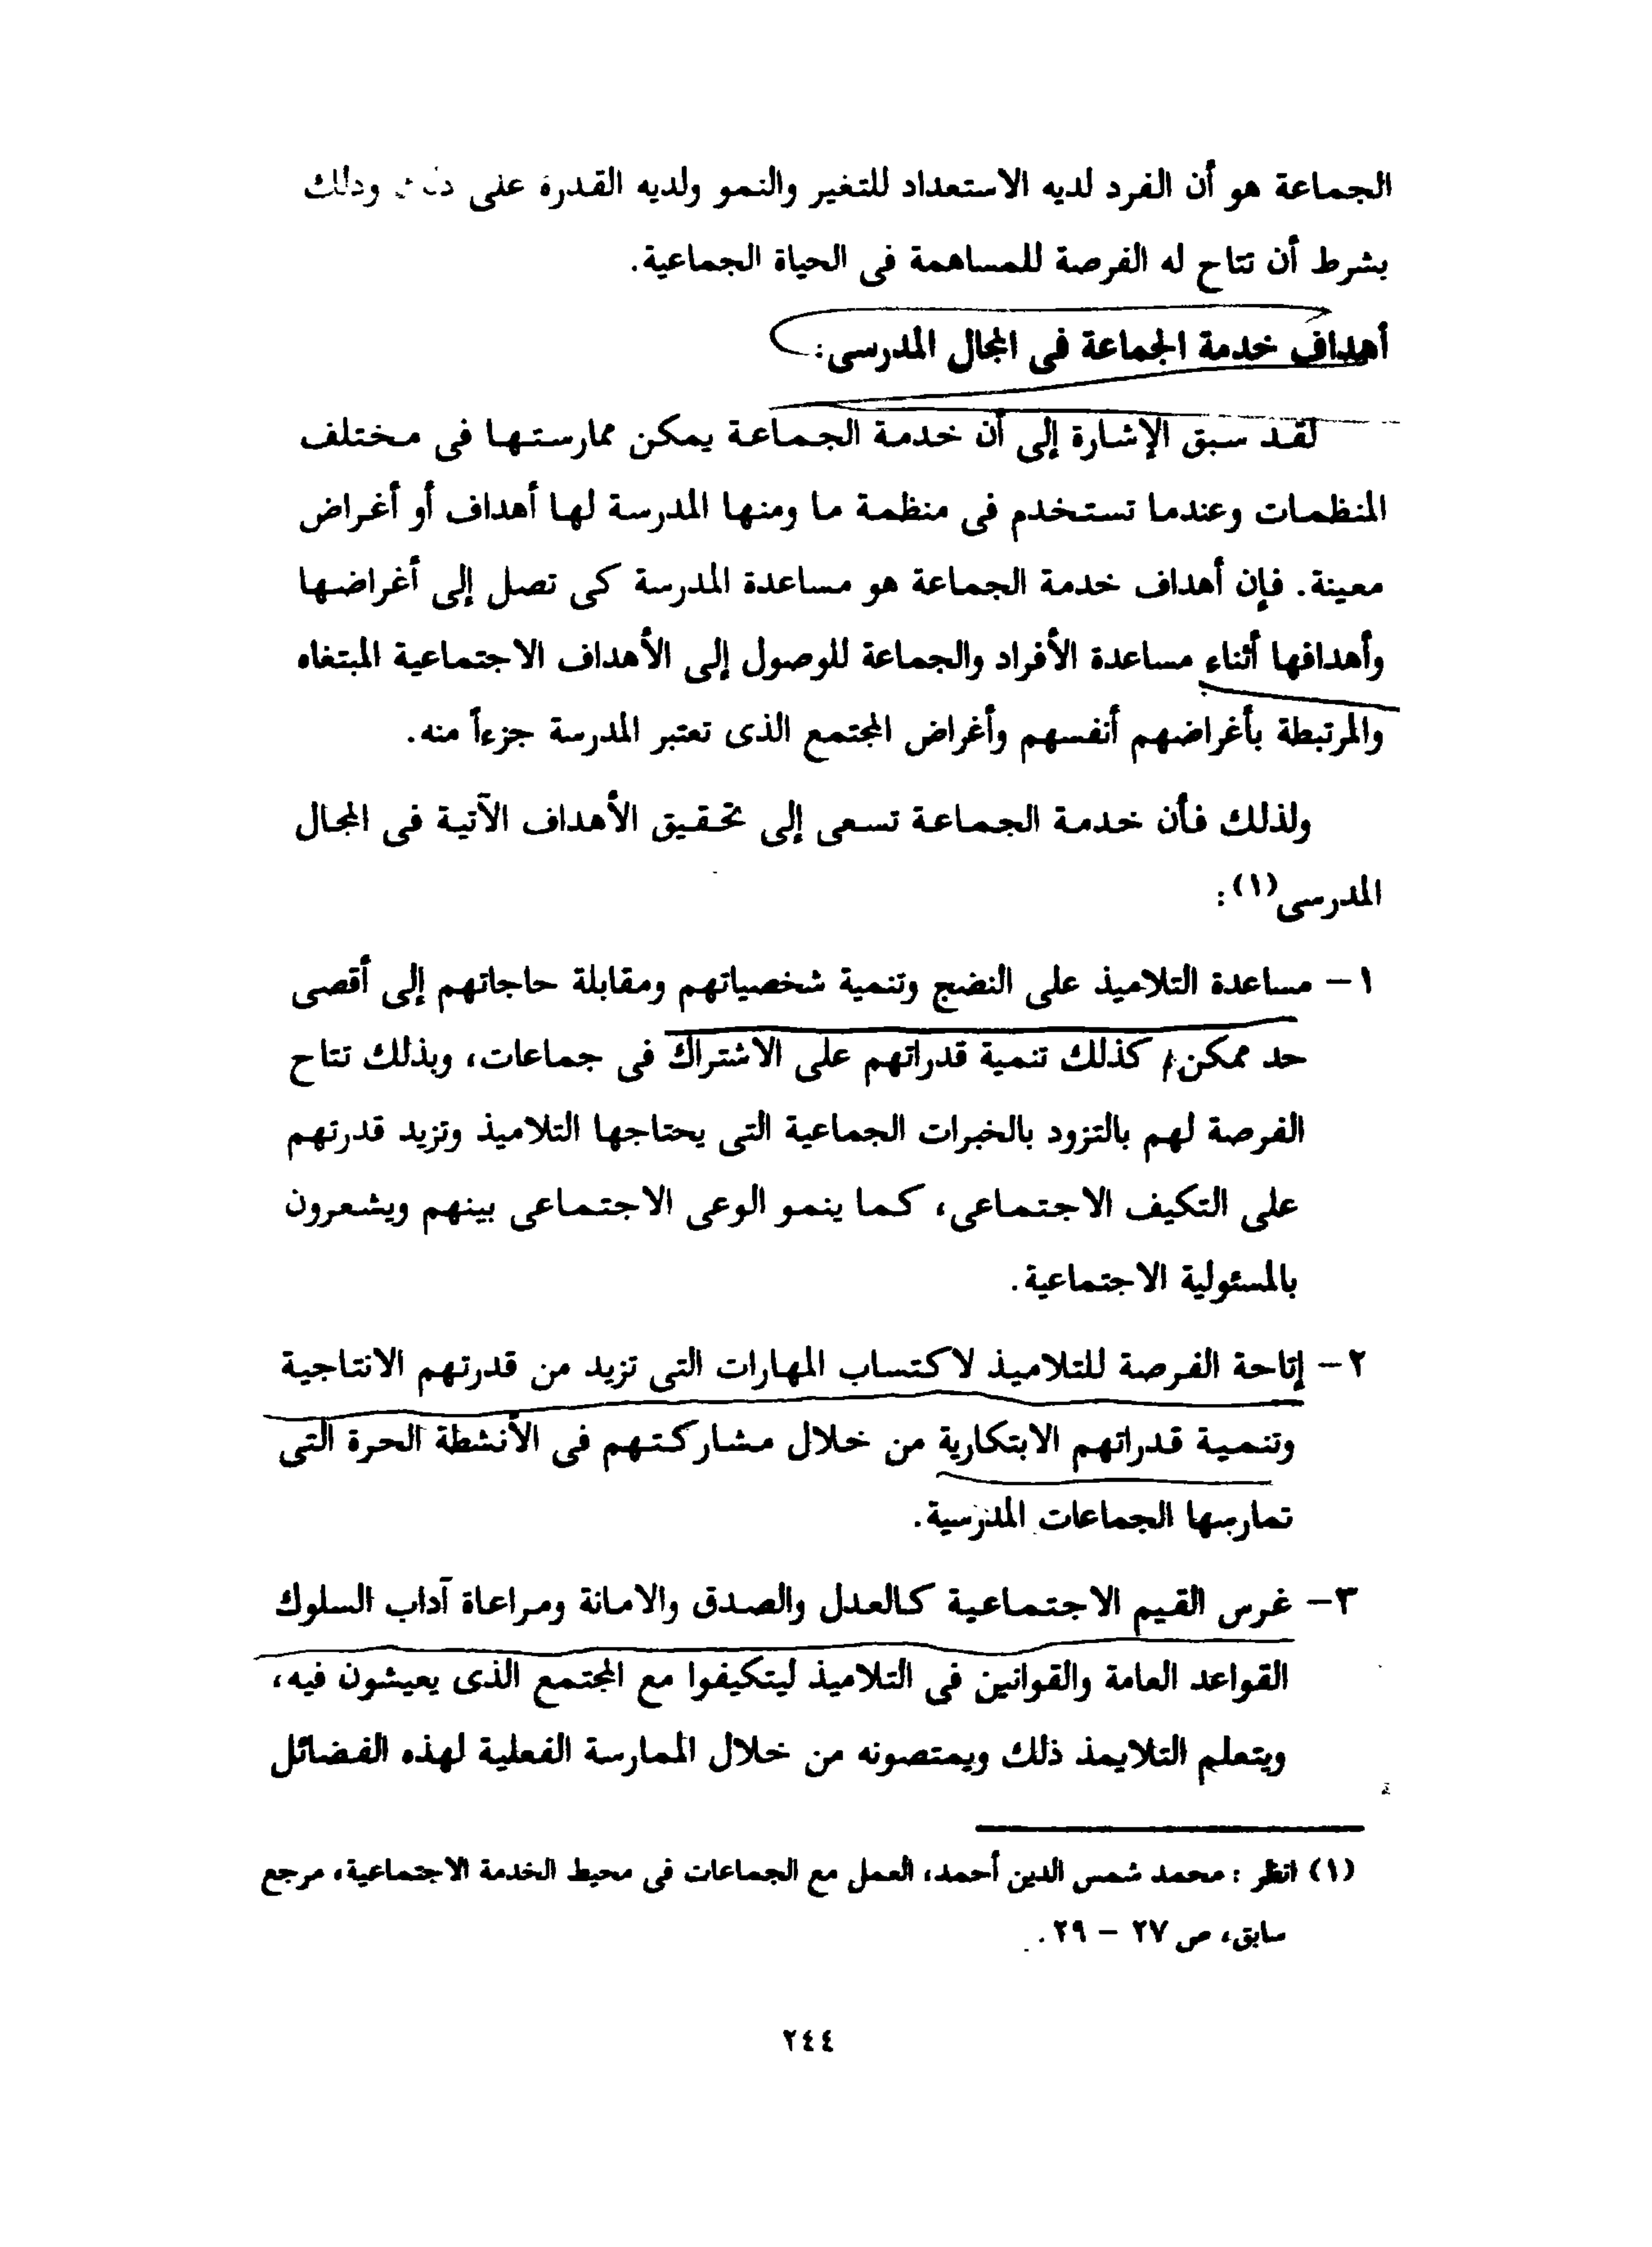 الجماعة هو أن الفرد لديه الاستعداد للتغير والنمو ولديه القدرة على وذلك
بشرط أن تتاح له الفرصة للمساهمة فى الحياة الجماعية.
أهداف خدمة الجماعة فى المجال المدرسى:
لقد سبق الإشارة إلى أن خدمة الجماعة يمكن ممارستها فى مختلف
المنظمات وعندما تستخدم فى منظمة ما ومنها المدرسة لها أهداف أو أغراض
معينة. فإن أهداف خدمة الجماعة هو مساعدة المدرسة كى تصل إلى أغراضها
وأهدافها أثناء مساعدة الأفراد والجماعة للوصول إلى الأهداف الاجتماعية المبتغاه
والمرتبطة بأغراضهم أنفسهم وأغراض المجتمع الذى تعتبر المدرسة جزءاً منه.
ولذلك فأن خدمة الجماعة تسعى إلى تحقيق الأهداف الآتية فى المجال
المدرسى(١):
١- مساعدة التلاميذ على النضج وتنمية شخصياتهم ومقابلة حاجاتهم إلى أقصى
حد ممكن، كذلك تنمية قدراتهم على الاشتراك فى جماعات، وبذلك تتاح
الفرصة لهم بالتزود بالخبرات الجماعية التى يحتاجها التلاميذ وتزيد قدرتهم
على التكيف الاجتماعى، كما ينمو الوعى الاجتماعى بينهم ويشعرون
بالمسئولية الاجتماعية.
٢- إتاحة الفرصة للتلاميذ لاكتساب المهارات التى تزيد من قدرتهم الانتاجية
وتنمية قدراتهم الابتكارية من خلال مشاركتهم فى الأنشطة الحرة التى
تمارسها الجماعات المدرسية.
٣- غرس القيم الاجتماعية كالعدل والصدق والامانة ومراعاة آداب السلوك
القواعد العامة والقوانين فى التلاميذ ليتكيفوا مع المجتمع الذى يعيشون فيه،
ويتعلم التلايمذ ذلك ويمتصونه من خلال الممارسة الفعلية لهذه الفضائل
(١) انظر : محمد شمس الدين أحمد، العمل مع الجماعات فى محيط الخدمة الاجتماعية، مرجع
سابق، ص ٢٧ - ٢٩.
٢٤٤